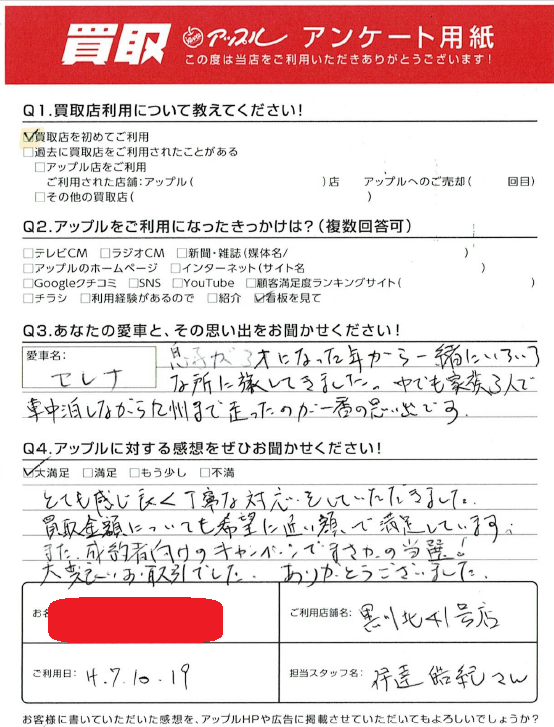 買取 アップル アンケート用紙
この度は当店をご利用いただきありがとうございます!
Q1.買取店利用について教えてください!
買取店を初めてご利用
□過去に買取店をご利用されたことがある
□アップル店をご利用
ご利用された店舗:アップル( )店 アップルへのご売却( 回目)
□その他の買取店( )
Q2.アップルをご利用になったきっかけは?(複数回答可)
□テレビCM □ラジオCM □新聞・雑誌(媒体名/ )
□アップルのホームページ □インターネット(サイト名 )
□Googleクチコミ □SNS □YouTube □顧客満足度ランキングサイト( )
□チラシ □利用経験があるので □紹介 ☑看板を見て
Q3.あなたの愛車と、その思い出をお聞かせください!
愛車名:
セレナ
息子が3才になった年から一緒にいろいろ
な所に旅してきました。中でも家族3人で
車中泊しながら九州まで走ったのが一番の思い出です.
Q4.アップルに対する感想をぜひお聞かせください!
☑大満足 □満足 □もう少し □不満
とても感じ良く丁寧な対応をしていただきました.
買取金額についても希望に近い額で満足しています.
また、成約者向けのキャンペーンでまさかの当選!
大変良いお取引でした. ありがとうございました.
お名
ご利用店舗名: 黒川北41号店
ご利用日: H.7.10.19
担当スタッフ名: 伊達 皓紀さん
お客様に書いていただいた感想を、アップルHPや広告に掲載させていただいてもよろしいでしょうか?